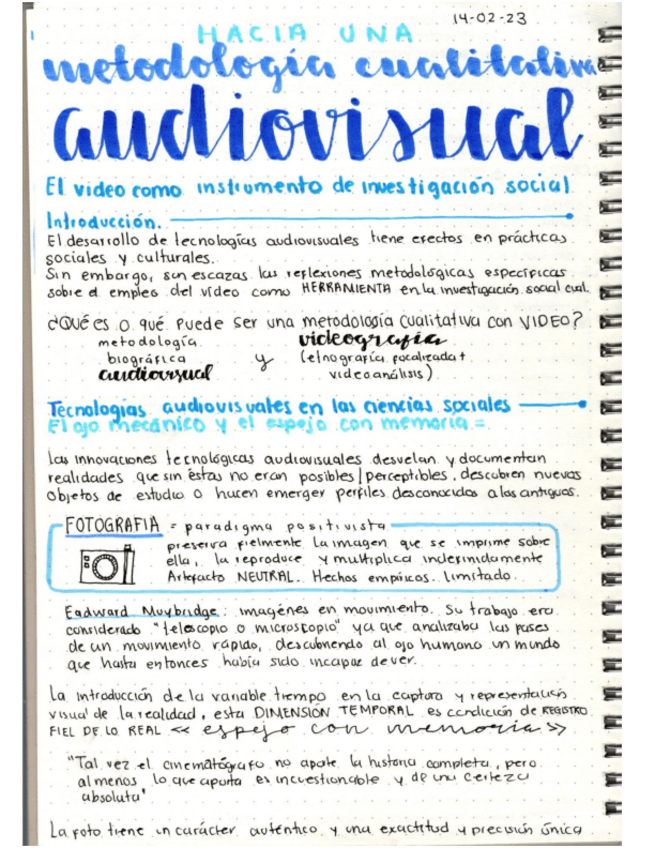 14-02-23
HACIA UNA
metodología cualitativa
audiovisual
El video como instrumento de investigación social
Introducción.
El desarrollo de tecnologías audiovisuales tiene efectos en prácticas
sociales y culturales.
Sin embargo, son escazas las reflexiones metodológicas específicas
sobre el empleo del vídeo como HERRAMIENTA en la investigación social cual.
¿QUé es o qué puede ser una metodología cualitativa con VIDEO?
metodología biográfica audiovisual y videografía (etnografía focalizada + videoanálisis)
Tecnologías audiovisuales en las ciencias sociales
El ojo mecánico y el espejo con memoria =
Las innovaciones tecnológicas audiovisuales desvelan y documentan
realidades que sin éstas no eran posibles/perceptibles, descubren nuevos
objetos de estudio o hacen emerger perfiles desconocidos a los antiguos.
FOTOGRAFIA = paradigma positivista
preserva fielmente la imagen que se imprime sobre
ella, la reproduce y multiplica indefinidamente
Artefacto NEUTRAL. Hechos empíricos. Limitado.
Eadward Muybridge: imagénes en movimiento. Su trabajo era
considerado "telescopio o microscopio" ya que analizaba las fases
de un movimiento rápido, descubriendo al ojo humano un mundo
que hasta entonces había sido incapaz de ver.
La introducción de la variable tiempo en la captura y representación
visual de la realidad, esta DIMENSIÓN TEMPORAL es condición de REGISTRO
FIEL DE LO REAL << espejo con memoria >>
"Tal vez el cinematógrafo no aporte la historia completa, pero
al menos lo que aporta es incuestionable y de una certeza
absoluta"
La foto tiene un carácter auténtico y una exactitud y precisión única